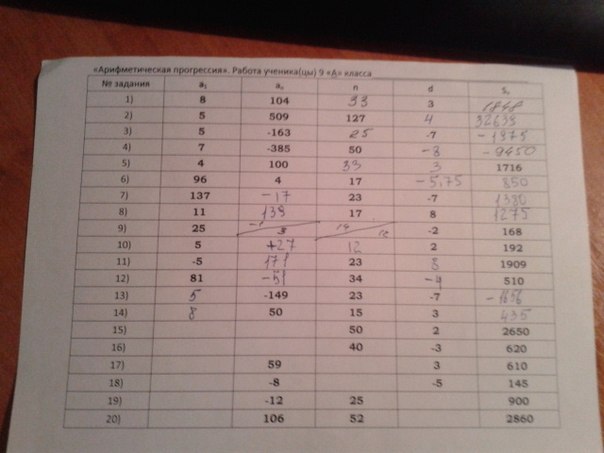 «Арифметическая прогрессия». Работа ученика(цы) 9 «А» класса
№ задания a₁ aₙ n d Sₙ
1) 8 104 33 3 1848
2) 5 509 127 4 32639
3) 5 -163 25 -7 -1975
4) 7 -385 50 -8 -9450
5) 4 100 33 3 1716
6) 96 4 17 -5,75 850
7) 137 -17 23 -7 1380
8) 11 139 17 8 1275
9) 25 -2 168
10) 5 +27 12 2 192
11) -5 171 23 8 1909
12) 81 -51 34 -4 510
13) 5 -149 23 -7 -1656
14) 8 50 15 3 435
15) 50 2 2650
16) 40 -3 620
17) 59 3 610
18) -8 -5 145
19) -12 25 900
20) 106 52 2860